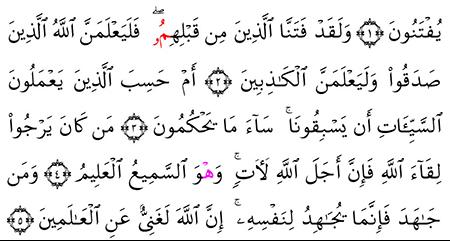 يُفۡتَنُونَ ١ وَلَقَدۡ فَتَنَّا ٱلَّذِينَ مِن قَبۡلِهِمُۥۖ فَلَيَعۡلَمَنَّ ٱللَّهُ ٱلَّذِينَ
صَدَقُواْ وَلَيَعۡلَمَنَّ ٱلۡكَٰذِبِينَ ٢ أَمۡ حَسِبَ ٱلَّذِينَ يَعۡمَلُونَ
ٱلسَّيِّـَٔاتِ أَن يَسۡبِقُونَاۚ سَآءَ مَا يَحۡكُمُونَ ٣ مَن كَانَ يَرۡجُواْ
لِقَآءَ ٱللَّهِ فَإِنَّ أَجَلَ ٱللَّهِ لَأٓتٖۚ وَهۡوَ ٱلسَّمِيعُ ٱلۡعَلِيمُ ٤ وَمَن
جَٰهَدَ فَإِنَّمَا يُجَٰهِدُ لِنَفۡسِهِۦٓۚ إِنَّ ٱللَّهَ لَغَنِيٌّ عَنِ ٱلۡعَٰلَمِينَ ٥